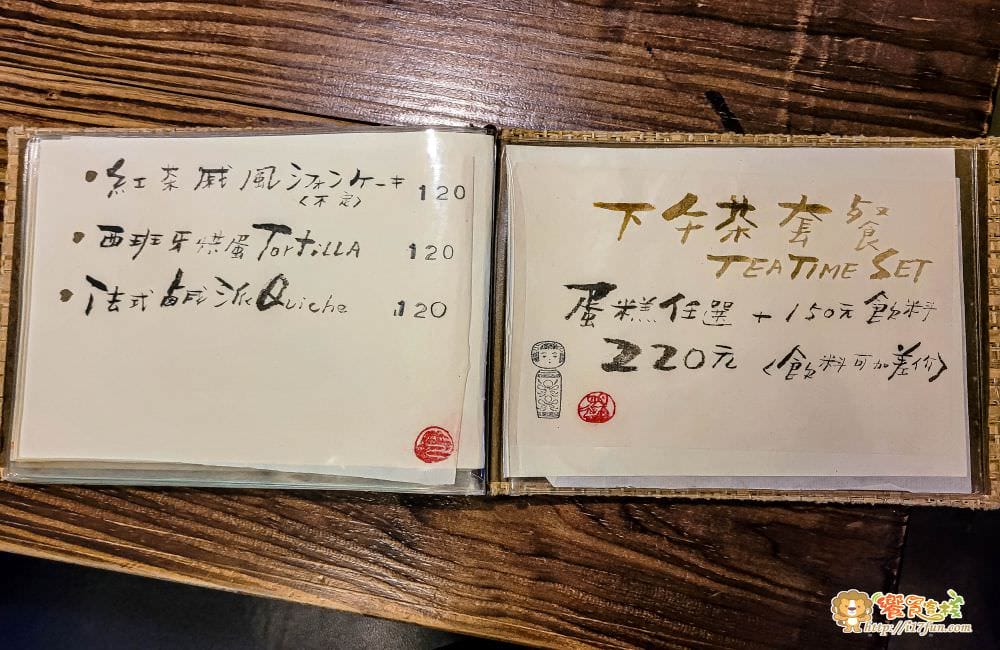 紅茶戚風シフォンケーキ 120
〈不定〉
西班牙烘蛋Tortilla 120
法式鹹派Quiche 120
下午茶套餐
TEATIME SET
蛋糕任選 + 150元飲料
220元 〈飲料可加差价〉
饗食逸樣
http://t17fun.com